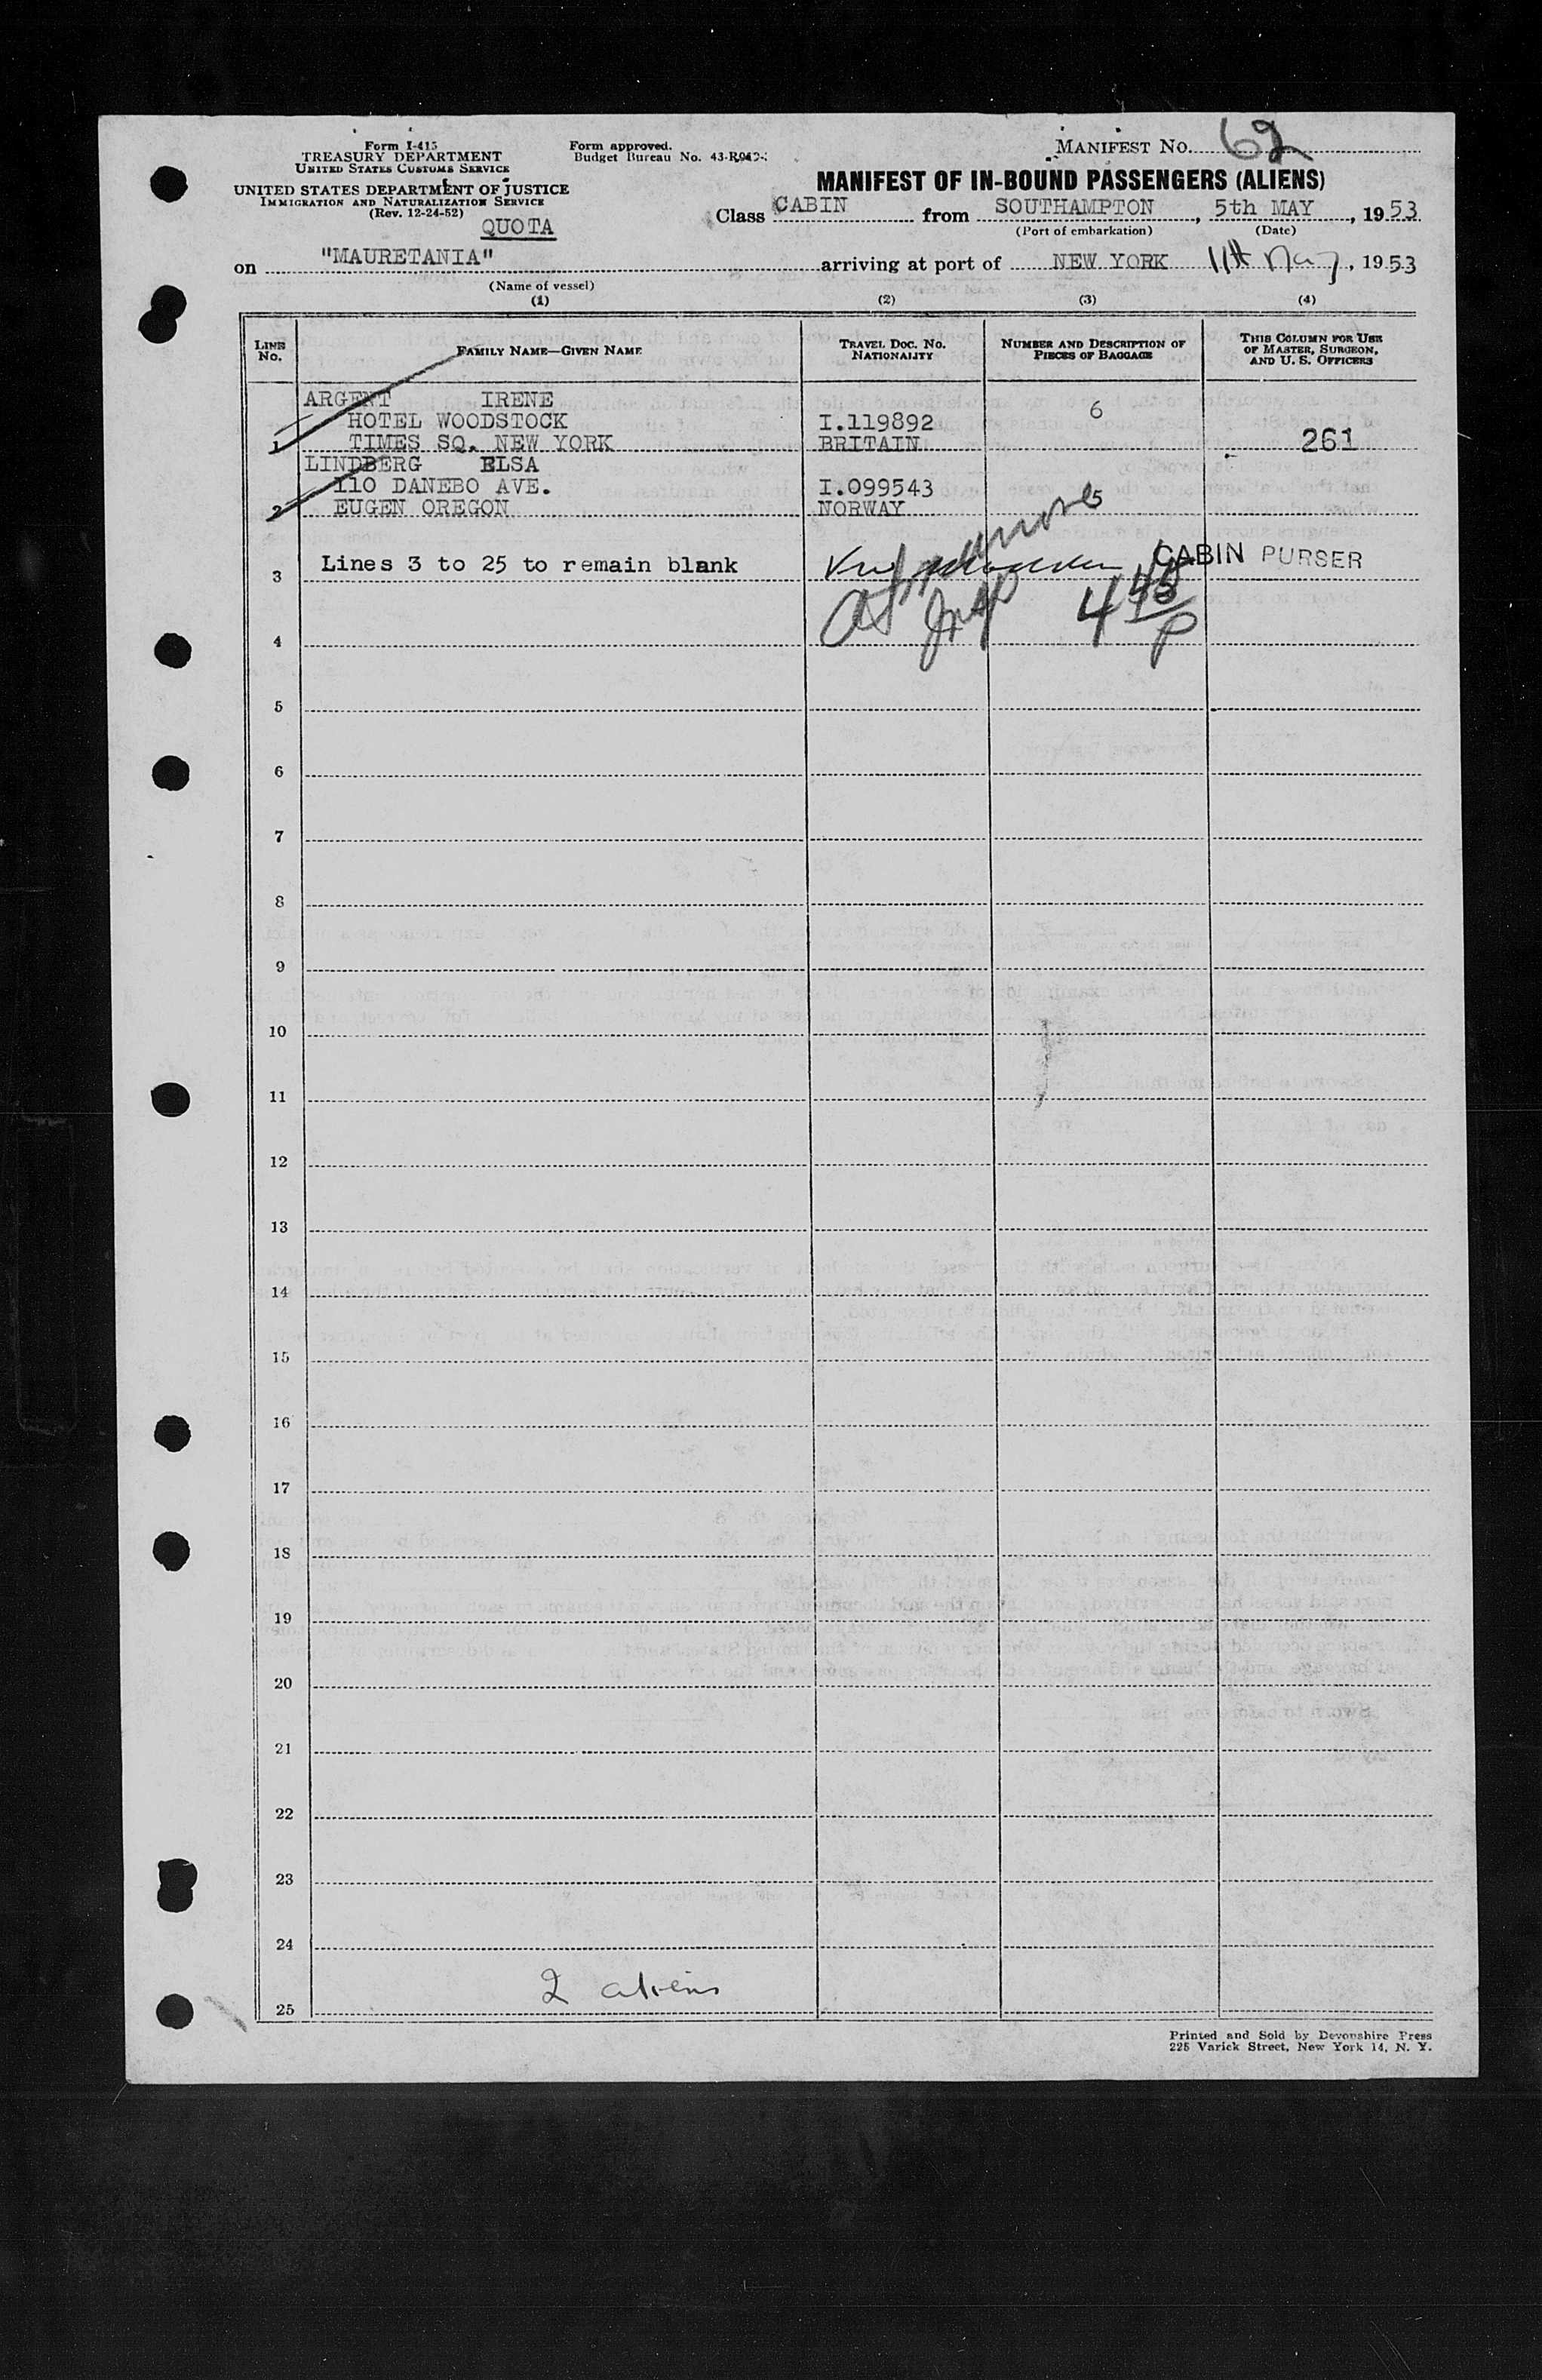 Form I-415
TREASURY DEPARTMENT
UNITED STATES CUSTOMS SERVICE
UNITED STATES DEPARTMENT OF JUSTICE
IMMIGRATION AND NATURALIZATION SERVICE
(Rev. 12-24-52)
QUOTA
Form approved.
Budget Bureau No. 43-R040
MANIFEST No. 62
MANIFEST OF IN-BOUND PASSENGERS (ALIENS)
Class CABIN from SOUTHAMPTON, 5th MAY, 1953
(Port of embarkation) (Date)
on "MAURETANIA" arriving at port of NEW YORK 11th May, 1953
(Name of vessel)
(1) (2) (3) (4)
LINE No. FAMILY NAME—GIVEN NAME TRAVEL DOC. NO. NATIONALITY NUMBER AND DESCRIPTION OF PIECES OF BAGGAGE THIS COLUMN FOR USE OF MASTER, SURGEON, AND U. S. OFFICERS
ARGENT IRENE
HOTEL WOODSTOCK I.119892 6
1 TIMES SQ. NEW YORK BRITAIN 261
LINDBERG ELSA
110 DANEBO AVE. I.099543 5
2 EUGEN OREGON NORWAY
3 Lines 3 to 25 to remain blank CABIN PURSER
4
5
6
7
8
9
10
11
12
13
14
15
16
17
18
19
20
21
22
23
24
2 aliens
25
Printed and Sold by Devonshire Press
225 Varick Street, New York 14, N. Y.